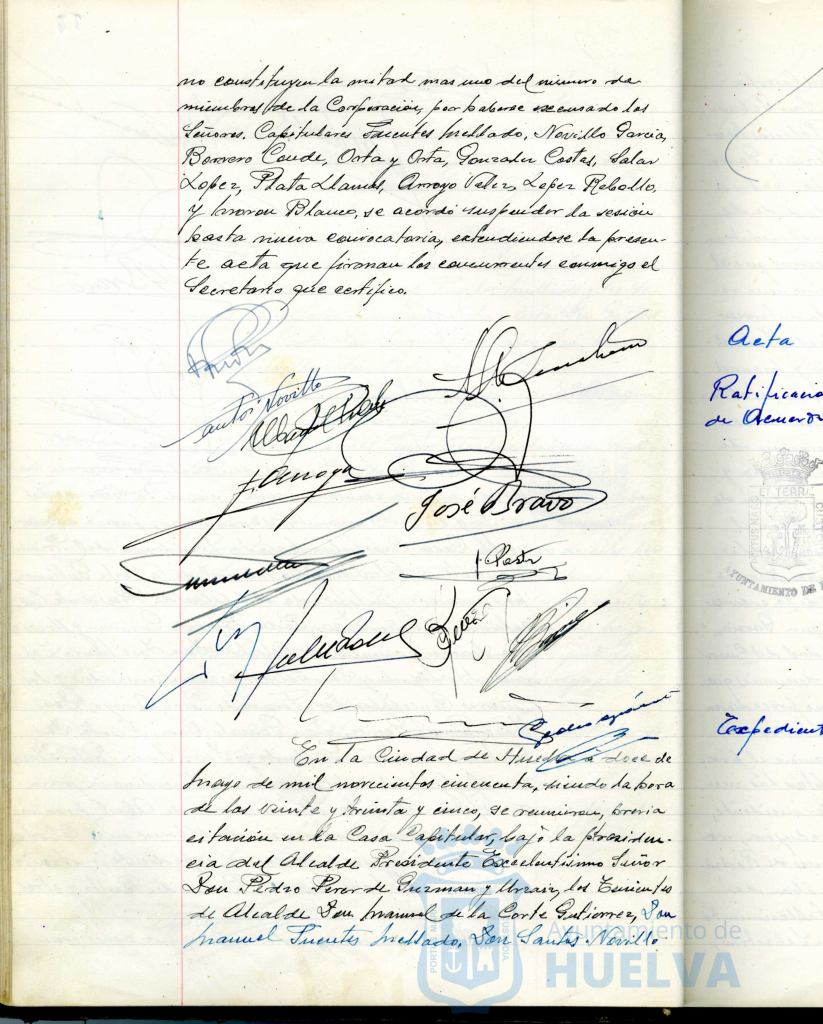 no constituyen la mitad mas uno del número de
miembros de la Corporación, por haberse excusado los
Señores Capitulares Fuentes Mellado, Novillo García,
Borrero Conde, Orta y Orta, Gonzalez Costas, Salas
Lopez, Plata Llamas, Arroyo Velez, Lopez Rebollo,
y Moron Blanco, se acordó suspender la sesión
hasta nueva convocatoria, extendiendose la presen-
te acta que firman los concurrentes conmigo el
Secretario que certifico.
Santos Novillo
J. Arroyo
José Bravo
En la Ciudad de Huelva a doce de
Mayo de mil novecientos cincuenta, siendo la hora
de las veinte y treinta y cinco, se reunieron, previa
citación en la Casa Capitular, bajo la presiden-
cia del Alcalde Presidente Excelentísimo Señor
Don Pedro Perez de Guzman y Urzaiz, los Tenientes
de Alcalde Don Manuel de la Corte Gutierrez, Don
Manuel Fuentes Mellado, Don Santos Novillo
Acta
Ratificacio
de Acuerdo
Expedient
AYUNTAMIENTO DE
Ayuntamiento de
HUELVA